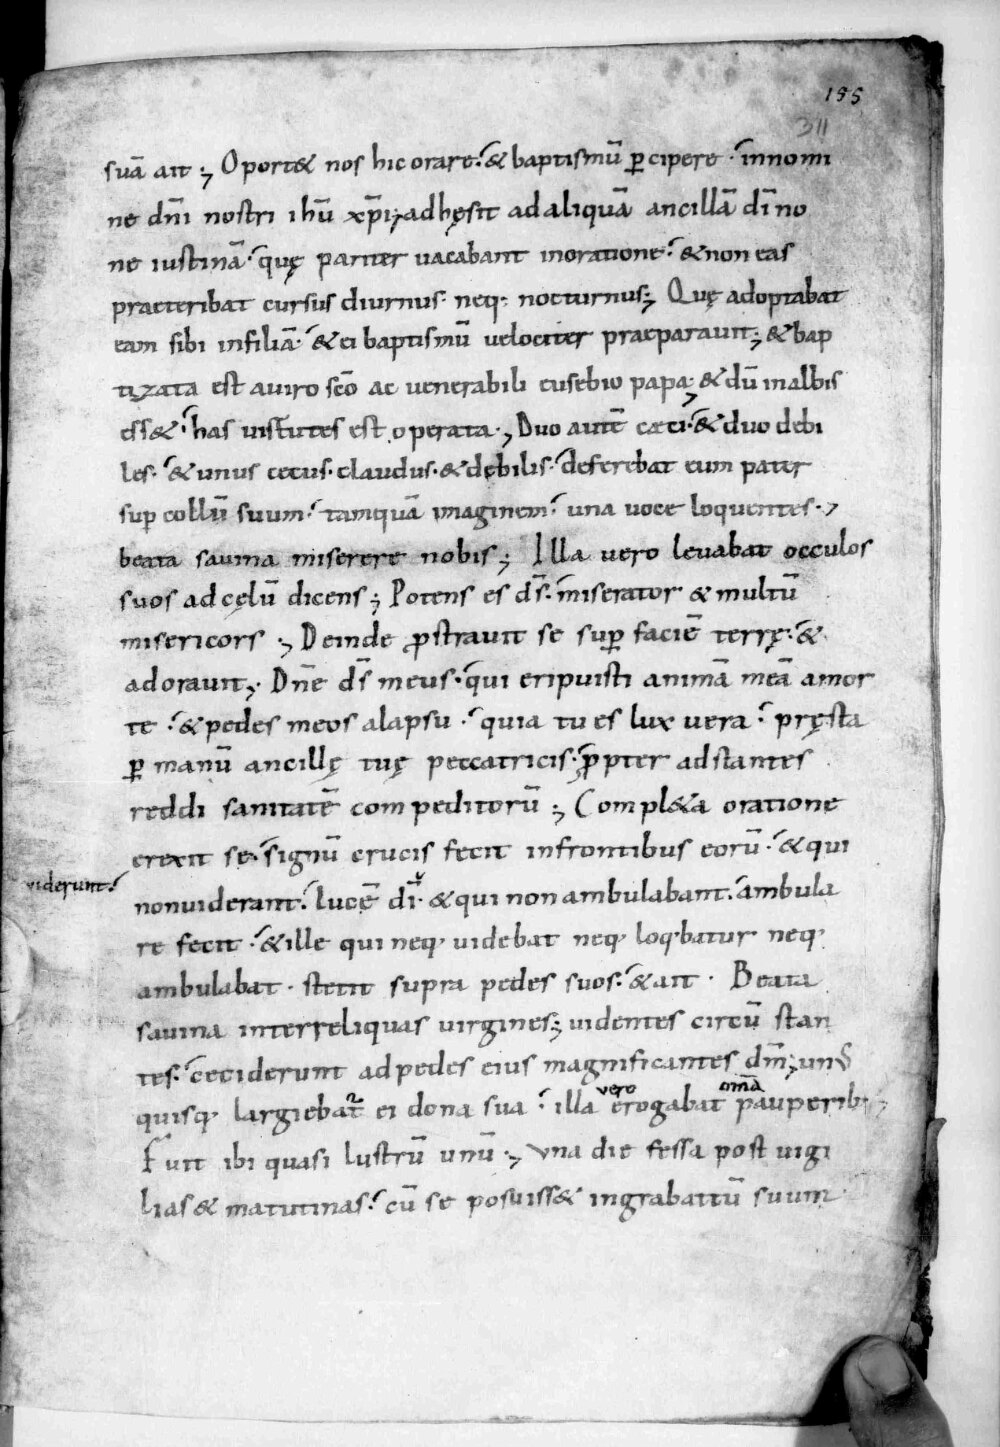 195
311
suā ait ; Oport& nos hic orare & baptismū p̄cipere innomi
ne dn̄i nostri ihū xp̄i; adhęsit adaliquā ancillā dī no
ne iustinā quę pariter uacabant inoratione & non eas
praeteribat cursus diurnus neq; nocturnus; Quę adoptabat
eam sibi infiliā & ei baptismū velociter praeparauit; & bap
tizata est auiro sc̄o ac venerabili eusebio papa; & dū inalbis
ess& has uistutes est operata; Duo autē cęci & duo debi
les & unus cecus claudus & debilis deferebat eum pater
sup collū suum tamquā imaginem una uoce loquentes;
beata sauina miserere nobis; Illa vero levabat occulos
suos adcęlū dicens; Potens es dś miserator & multū
misericors ; Deinde p̄stravit se sup̄ faciē terrę &
adorauit; Dn̄e dś meus qui eripuisti animā meā amor
te & pedes meos alapsu quia tu es lux vera pręsta
p̄ manū ancillę tuę peccatricis p̄pter adstantes
reddi sanitatē compeditorū ; Compl&a oratione
erexit se signū crucis fecit infrontibus eorū & qui
viderunt
nonuiderant lucē dī & qui non ambulabant ambula
re fecit & ille qui neq; uidebat neq; loq̄batur neq;
ambulabat stetit supra pedes suos & ait Beata
sauina interreliquas virgines; videntes circū stan
tes ceciderunt adpedes eius magnificantes dm̄; unus
quisq; largiebat ei dona sua illa vero erogabat omā pauperib;
Fuit ibi quasi lustrū unū ; Vna die fessa post uigi
lias & matutinas cū se posuiss& ingrabattū suum